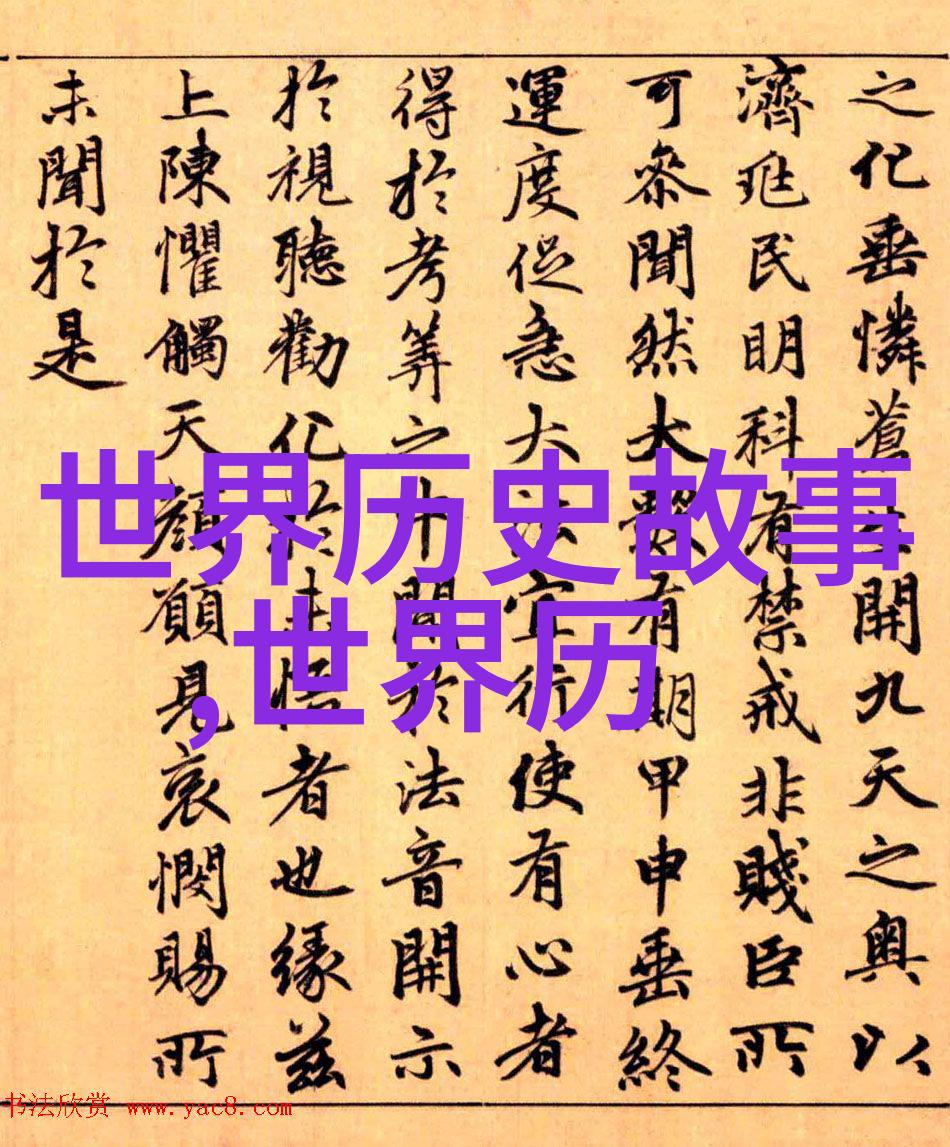 之化垂憐蒼生開九天之奧以
濟兆民明科有禁戒非賤臣所
可叅聞然大數有期甲申垂終
運度促急大法宜行使有心者
得於考筭之中聞於法音開示
於視聽勸化於未悟者也緣茲
上陳懼觸天顏願見哀憫賜所
未聞於是
世界历史故事
,世界历
书法欣赏 www.yac8.com